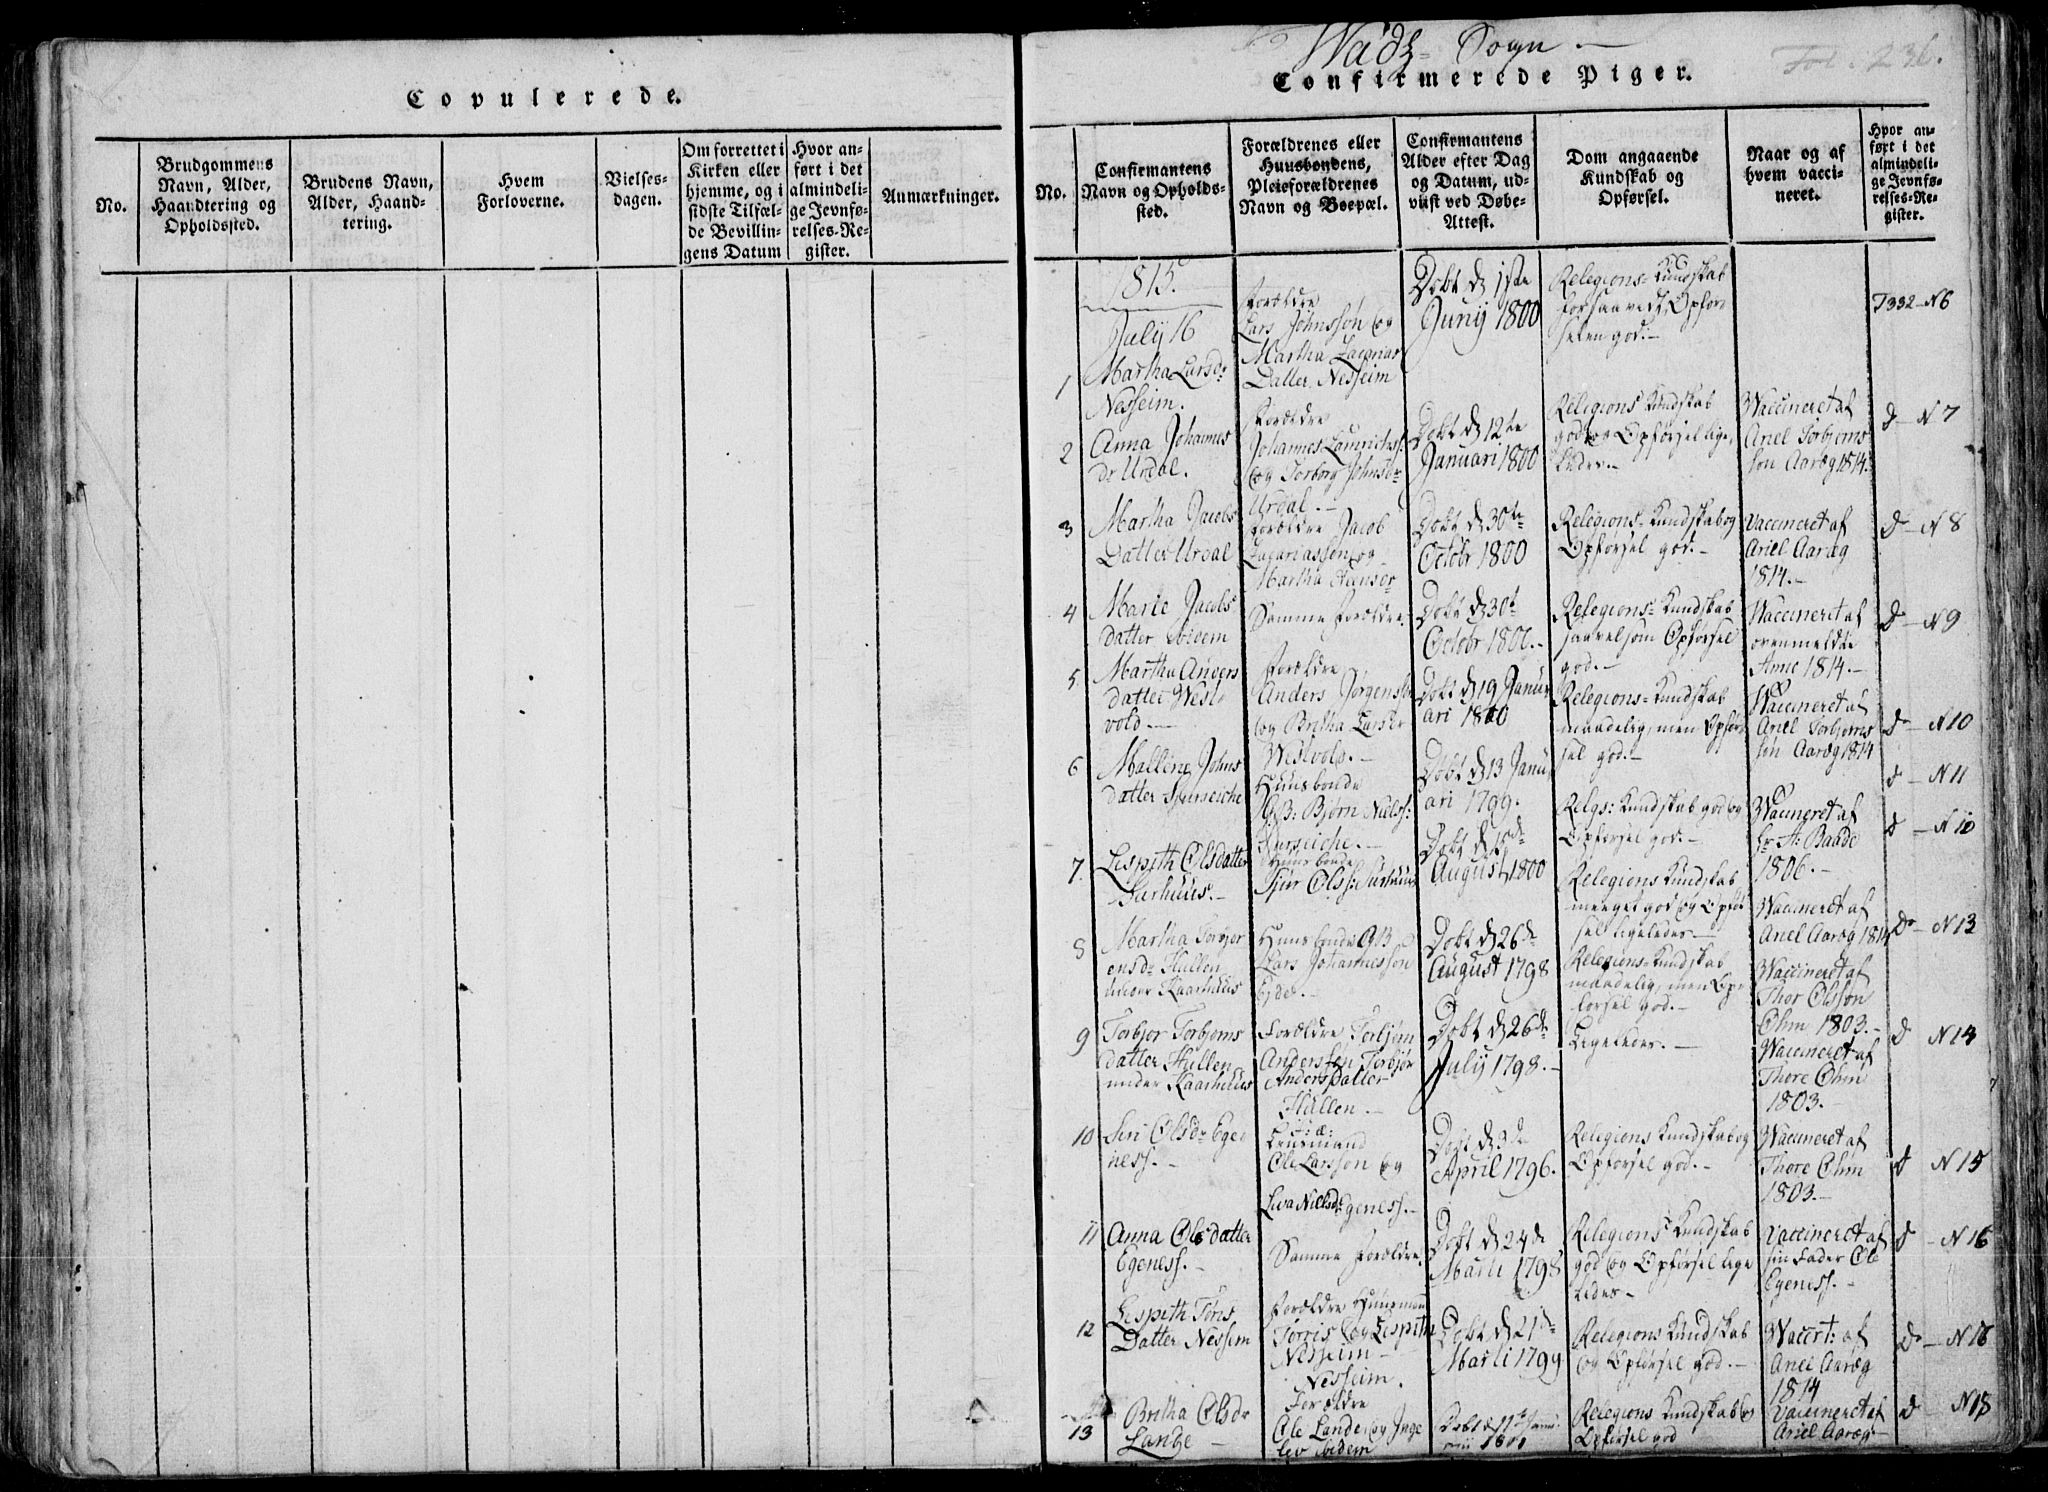 Copulerede.
No.
Brudgommens
Navn, Alder,
Haandtering og
Opholdssted.
Brudens Navn,
Alder, Haand-
tering.
Hvem
Forloverne.
Vielses-
dagen.
Om forrettet i
Kirken eller
hjemme, og i
sidste Tilfæl-
de Bevillin-
gens Datum
Hvor an-
ført i det
almindeli-
ge Jevnfø-
relses-Re-
gister.
Anmærkninger.
Wadz- Sogn
Fol. 236.
Confirmerede Piger.
No.
Confirmantens
Navn og Opholds-
sted.
Forældrenes eller
Huusbondens,
Pleieforældrenes
Navn og Boepæl.
Confirmantens
Alder efter Dag
og Datum, ud-
viist ved Døbe-
Attest.
Dom angaaende
Kundskab og
Opførsel.
Naar og af
hvem vacci-
neret.
Hvor an-
ført i det
almindeli-
ge Jevnfø-
relses-Re-
gister.
1815.
July 16
1
Martha Larsdr
Nesheim.
Forældre
Lars Johnssøn og
Martha Zacarias
Datter Nesheim
Døbt d 1ste
Junij 1800
Religions-Kundskab
forsaavidt, Opfør
selen god.-
T332-N6
2
Anna Johannes
dr Urdal.
Forældre
Johannes Laurichss:
og Torborg Johnsdr
Urdal.-
Døbt d 12te
Januari 1800
Religions Kundskab
god og Opførsel lige-
ledes.-
Vaccineret af
Ariel Torbjørns
søn Aaræg 1814.
d - N 7
3
Martha Jacobs
Datter Urdal
Forældre Jacob
Zacariassøn og
Martha Hansdr
Døbt d 30te
Octobr 1800
Religions-Kundskab og
Opførsel god.-
Vaccineret af
Ariel Aaræg
1814.-
d - N 8
4
Marie Jacobs
datter ibidem
Samme Forældre.
Døbt d 30t
Octobr 1800.-
Religions-Kundskab
saavelsom Opførsel
god.-
Vaccineret af
ovenmeldte
Anno 1814.-
d - N 9
5
Martha Anders
datter West-
vold-
Forældre
Anders Jørgenssøn
og Britha Larsdr
Westvold.-
Døbt d 19 Janu-
ari 1800
Religions-Kundskab
maadelig, men Opfør-
sel god.-
Vaccineret af
Ariel Torbjørns
søn Aaræg 1814
d - N 10
6
Malline Johns
datter
Huusbonde
G:B: Bjørn Nielss:
Døbt d 13 Janu-
ari 1799.
Relgs: Kundskab god og
Opførsel god.-
Vaccineret af
Hr A: Baade
1806.-
d - N 11
7.
Lispith Olsdatter
Aarhuus.-
Huusbonde
Siur Olss: Aarhuus
August 1800
Religions Kundskab
meeget god og Opfør
sel ligeledes.-
Vaccineret af
Ariel Aaræg 1814
d - N 12
8
Martha Torbjør
ensdr Hullen
under Kaarhuus
Huusbonde G:B
Lars Johannessøn
Eide.-
Døbt d 26de
August 1798
Religions-Kundskab
maadelig, men Op-
førsel god.-
Vaccineret af
Thor Olssøn
Øhm 1803.-
d - N 13
9
Torbjør Torbjørns
datter Hullen
under Kaarhuus
Forældre Torbjørn
Anderssøn Torbjør
Andersdatter
Hullen.-
Døbt d 26de
July 1798.-
Ligeledes.-
Vaccineret af
Thore Øhm
1803.-
d N 14
10
Siri Olsdr Ege-
ness.-
Lensmand
Ole Larssøn og
Eva Nielsdr Egeness.-
Døbt d 3de
April 1796.
Religions Kundskab og
Opførsel god.-
Vaccineret af
Thore Øhm
1803.-
d - N 15
11
Anna Olsdatter
Egeness.-
Samme Forældre.
Døbt d 24de
Marti 1798
Religions Kundskab
god og Opførsel lige
ledes-
Vaccineret af
sin Fader Ole
Egeness.-
d - N 16
12
Lispith Tøris
Datter Nessem
Forældre Huusmand
Tørris og Lispith
Nesheim-
Nesheim.
Døbt d 21de
Marti 1799
Religions Kundskab
og Opførsel god.-
Vaccrt: af
Ariel Aaræg
1814
d - N 18
13
Britha Olsdr
Lande-
Forældre
Ole Lande og Inge
lev ibidem
Religions Kundskab og
Opførsel god
Vaccineret af
Ariel Aaræg
d - N 18